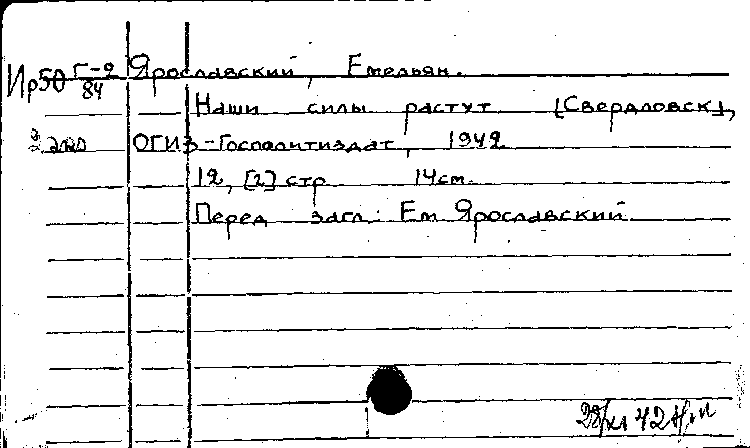 Ир50 Г-2/84 Ярославский, Емельян.
Наши силы растут [Свердловск],
ОГИЗ-Госполитиздат, 1942
12, [2] стр 14см.
Перед загл: Ем Ярославский